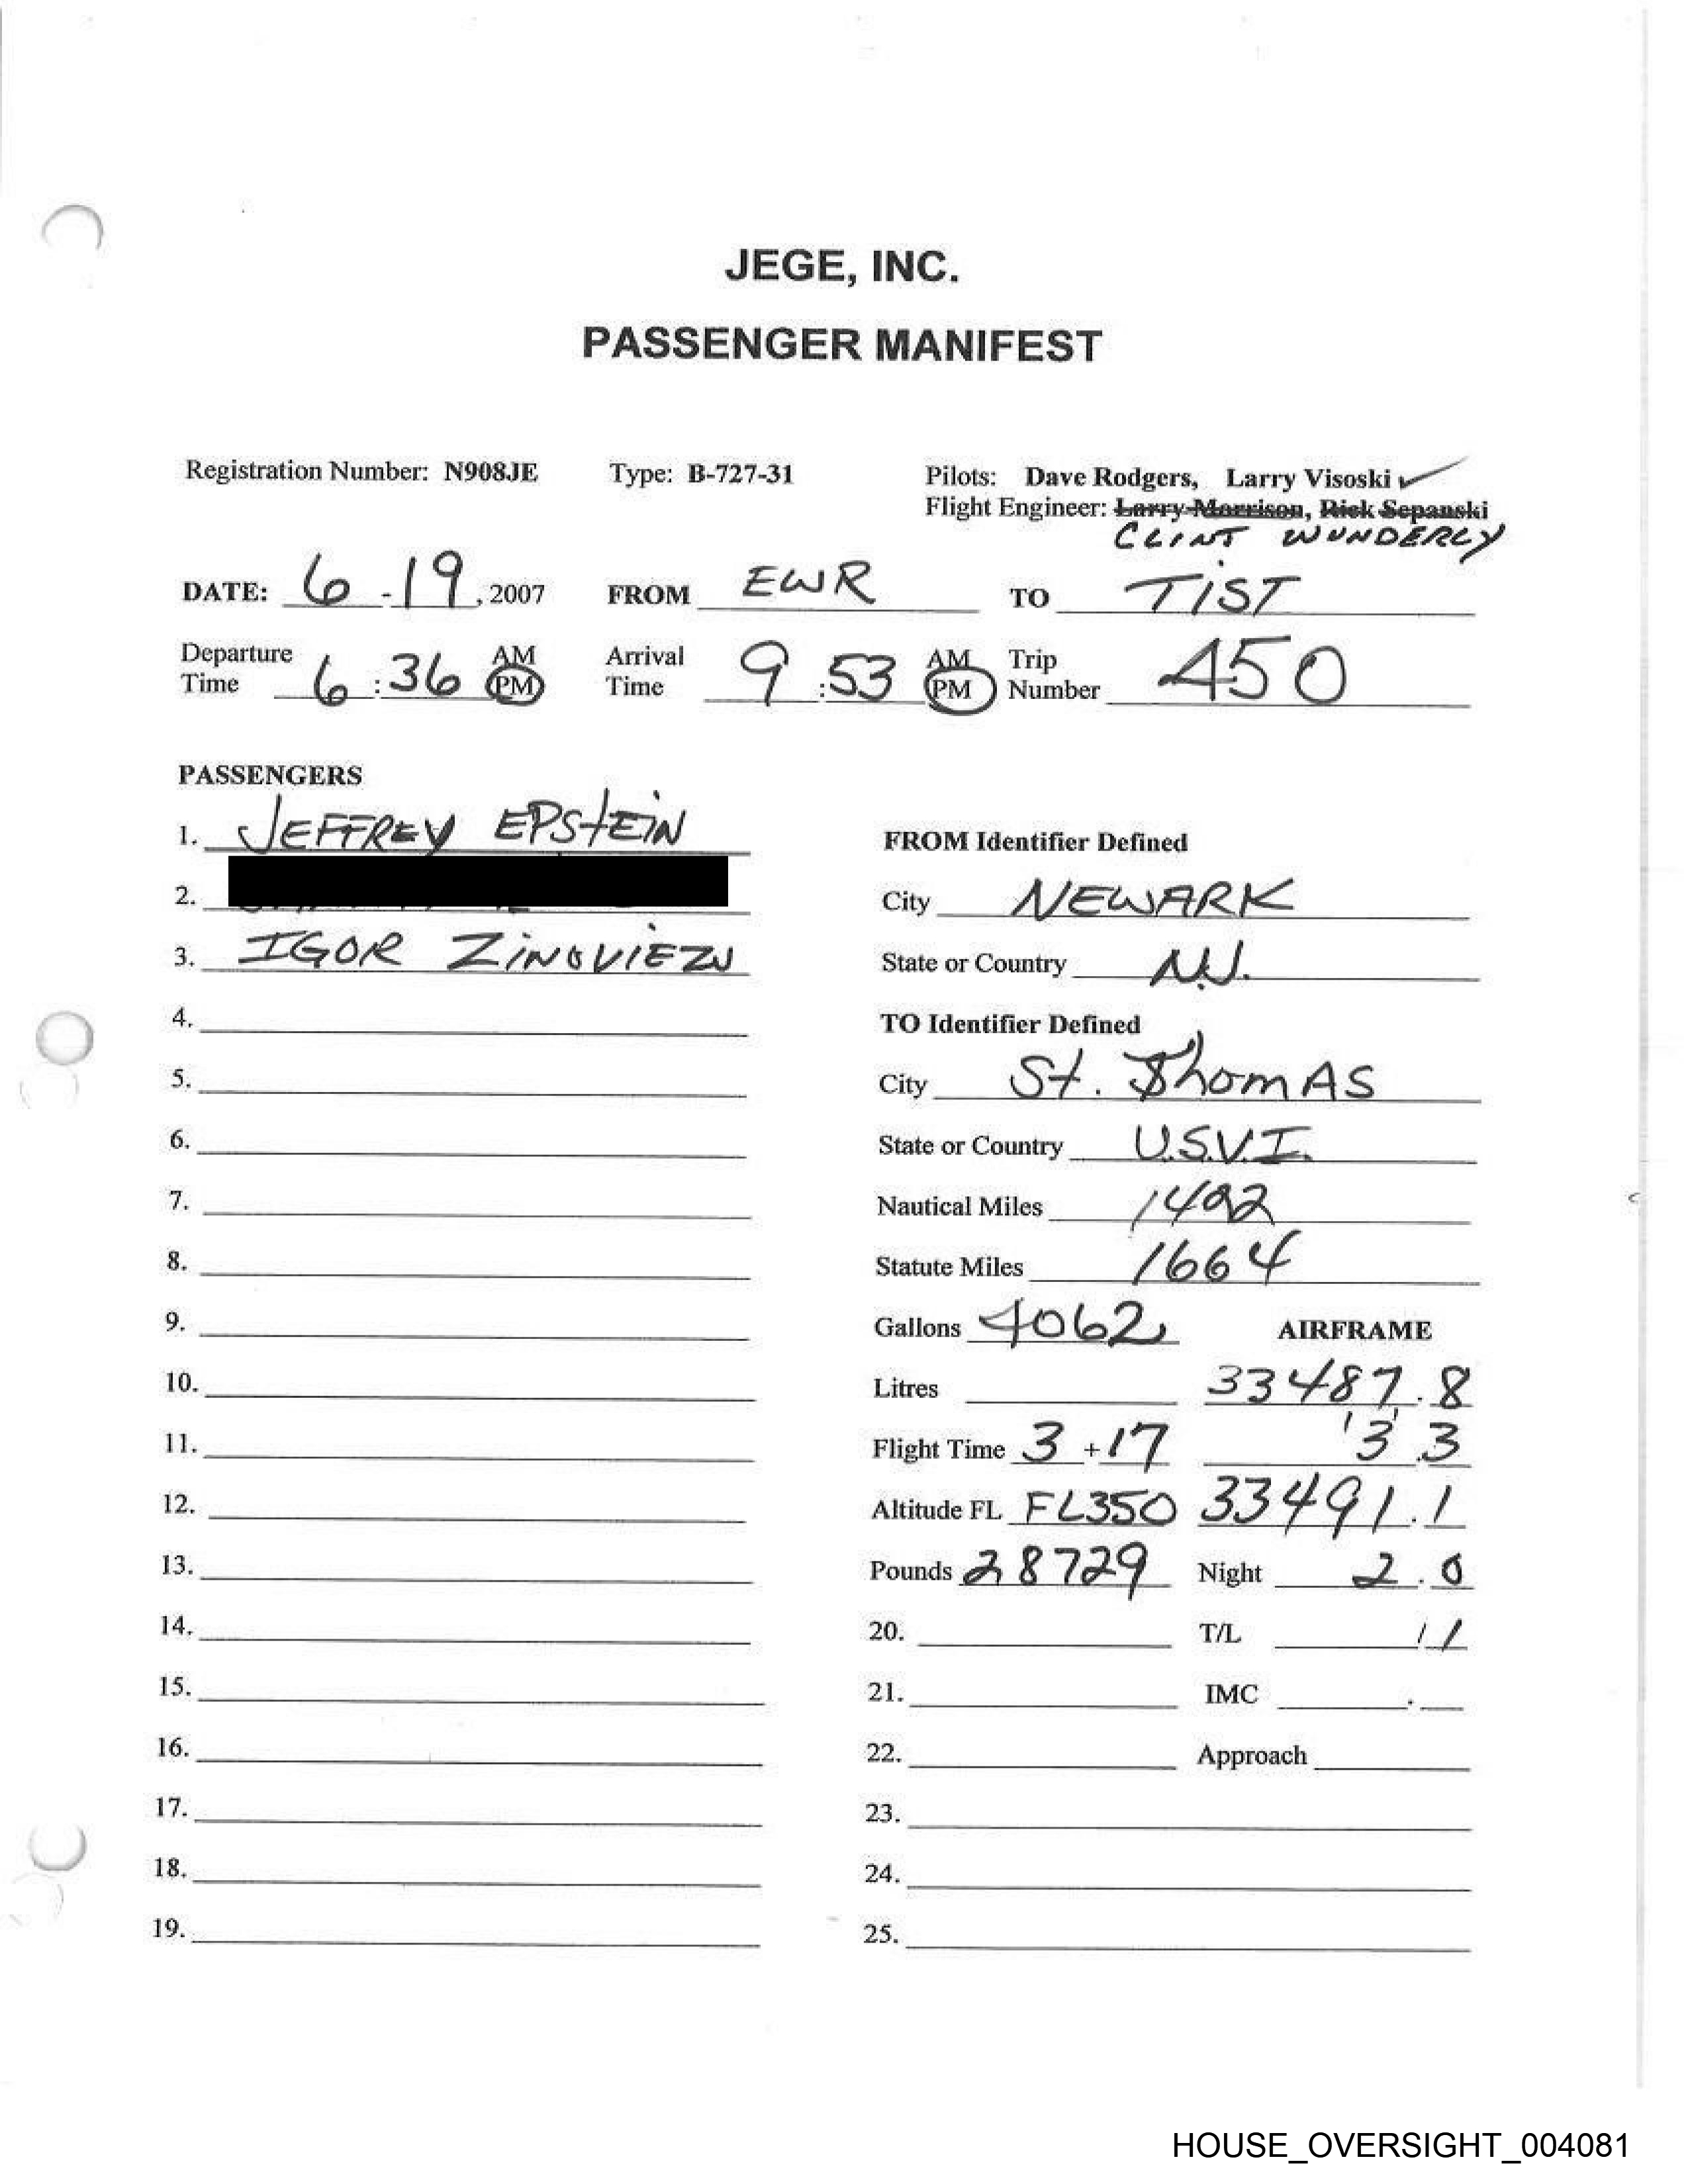 JEGE, INC.
PASSENGER MANIFEST
Registration Number: N908JE Type: B-727-31 Pilots: Dave Rodgers, Larry Visoski ✓
Flight Engineer: Larry Morrison, Rick Sepanski
CLINT WUNDERLY
DATE: 6-19, 2007 FROM EWR TO TIST
Departure Time 6:36 AM PM Arrival Time 9:53 AM PM Trip Number 450
PASSENGERS
1. JEFFREY EPSTEIN
2.
3. IGOR ZINOVIEZV
4.
5.
6.
7.
8.
9.
10.
11.
12.
13.
14.
15.
16.
17.
18.
19.
FROM Identifier Defined
City NEWARK
State or Country N.J.
TO Identifier Defined
City St. ThomAS
State or Country U.S.V.I.
Nautical Miles
Statute Miles 1664
Gallons 4062 AIRFRAME
Litres 33487.8
Flight Time 3+17 3.3
Altitude FL FL350 33491.1
Pounds 28729 Night 2.0
20. T/L 1/1
21. IMC .
22. Approach
23.
24.
25.
HOUSE_OVERSIGHT_004081